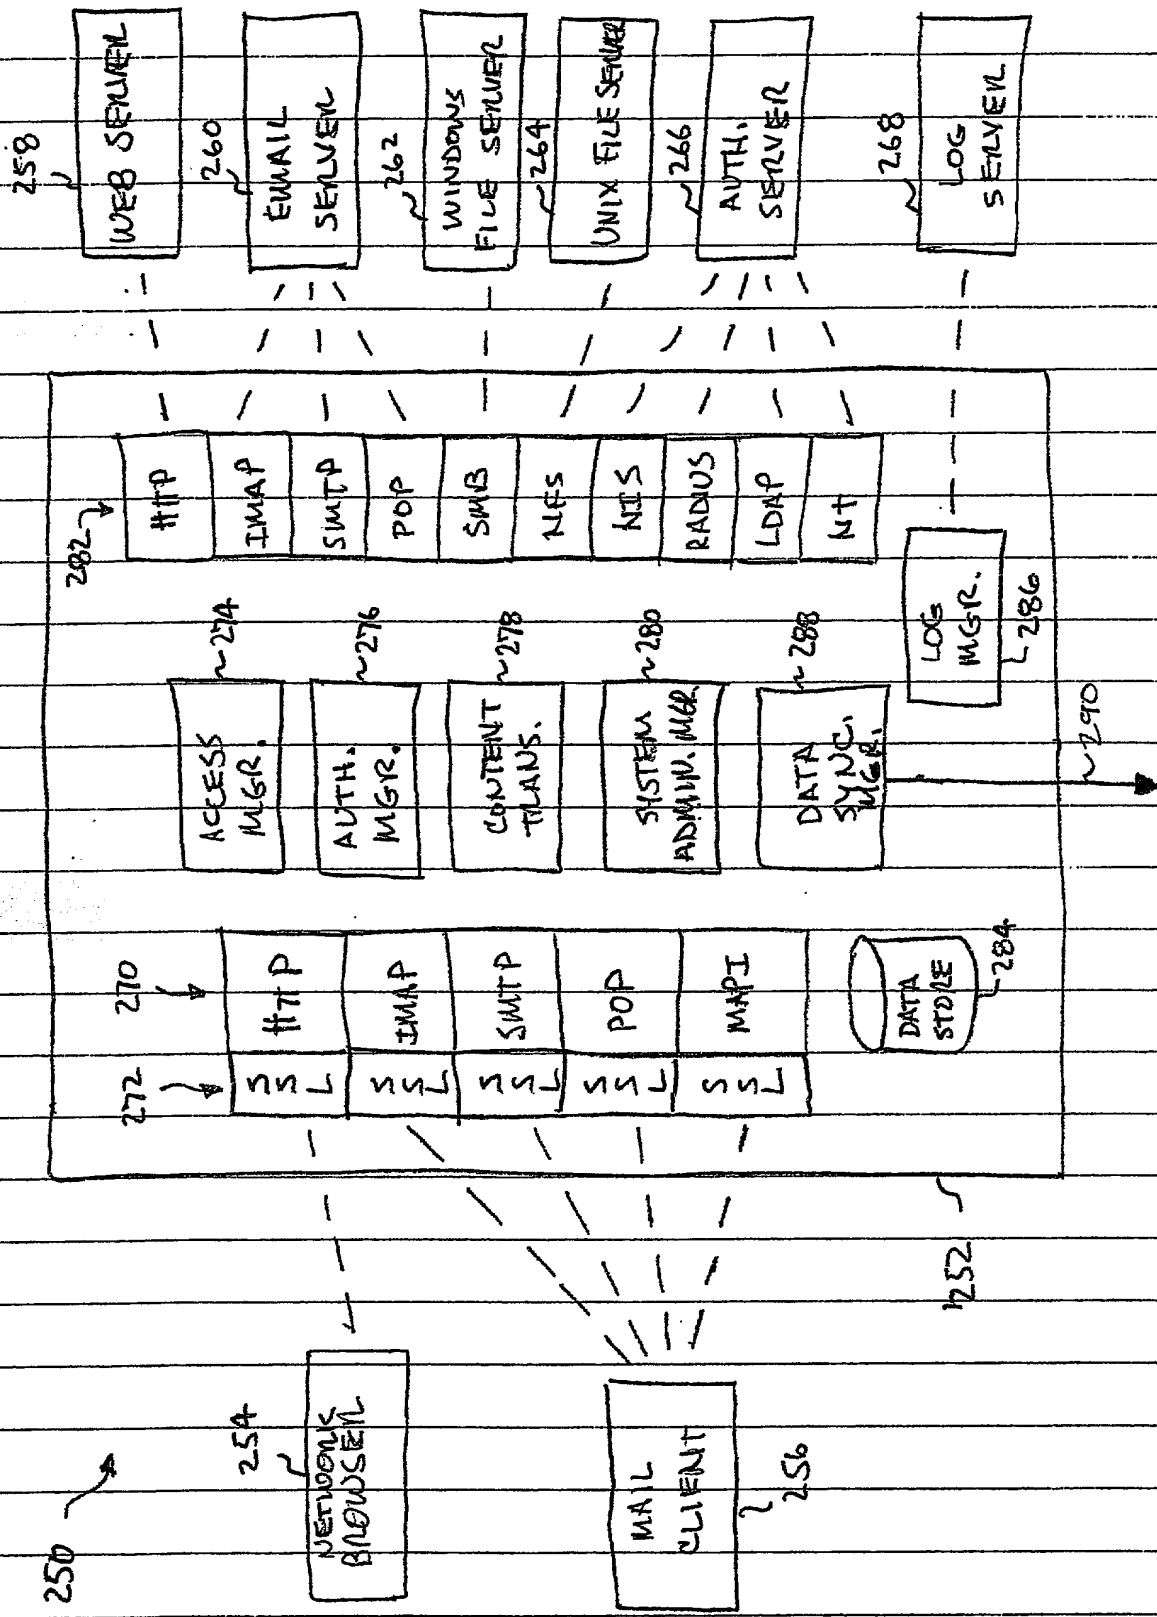 250
NETWORK
BROWSER
254
MAIL
CLIENT
256
252
270
272
HTTP
IMAP
SMTP
POP
MAPI
SSL
SSL
SSL
SSL
SSL
DATA
STORE
284
ACCESS
MGR.
274
AUTH.
MGR.
276
CONTENT
TRANS.
278
SYSTEM
ADMIN. MGR.
280
DATA
SYNC.
MGR.
288
290
LOG
MGR.
286
282
HTTP
IMAP
SMTP
POP
SMB
NFS
NIS
RADIUS
LDAP
NT
258
WEB SERVER
260
EMAIL
SERVER
262
WINDOWS
FILE SERVER
264
UNIX FILE SERVER
266
AUTH.
SERVER
268
LOG
SERVER